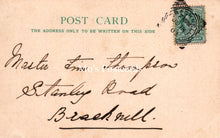 POST CARD
THE ADDRESS ONLY TO BE WRITTEN ON THIS SIDE
Master Jim Thompson
Stanley Road
Bracknell.